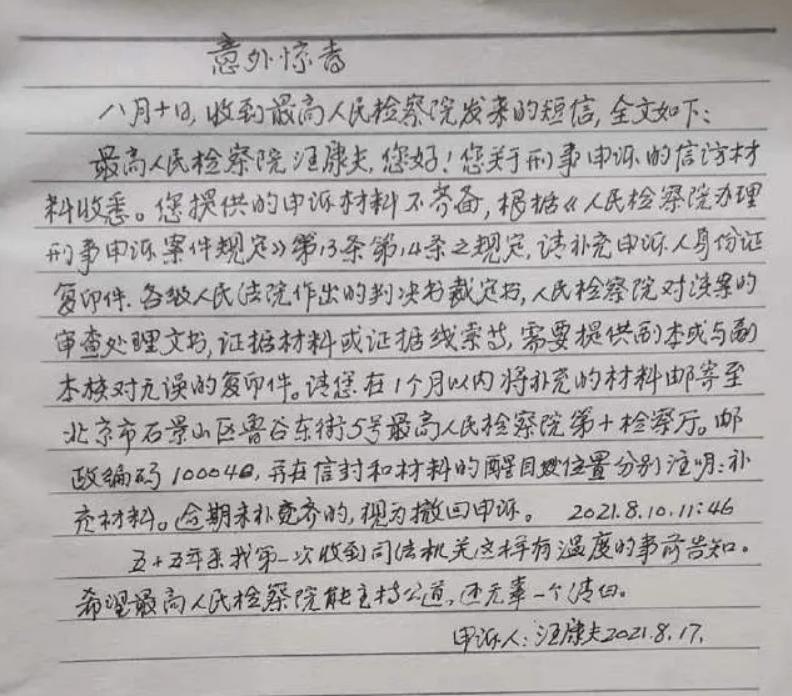 意外惊喜
八月十日,收到最高人民检察院发来的短信,全文如下:
最高人民检察院汪康夫,您好!您关于刑事申诉的信访材
料收悉。您提供的申诉材料不齐备,根据《人民检察院办理
刑事申诉案件规定》第13条第14条之规定,请补充申诉人身份证
复印件.各级人民法院作出的判决书裁定书,人民检察院对该案的
审查处理文书,证据材料或证据线索等,需要提供副本或与副
本核对无误的复印件。请您在1个月以内将补充的材料邮寄至
北京市石景山区鲁谷东街5号最高人民检察院第十检察厅。邮
政编码100040,并在信封和材料的醒目位置分别注明:补
充材料。逾期未补充齐的,视为撤回申诉。 2021.8.10.11:46
五十五年来我第一次收到司法机关这样有温度的事前告知。
希望最高人民检察院能主持公道,还无辜一个清白。
申诉人:汪康夫2021.8.17.